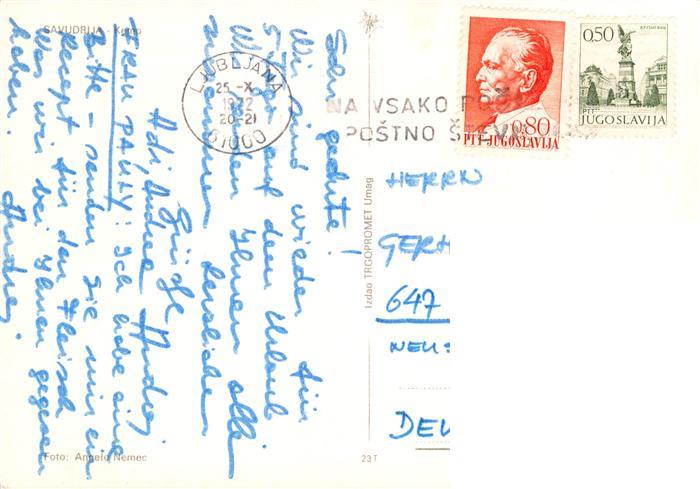 SAVUDRIJA - Kamp
LJUBLJANA
25.-X.
1972
20-21
61000
NA VSAKO POŠ
POŠTNO ŠTEV
0.80
PTT-JUGOSLAVIJA
0,50
PTT
JUGOSLAVIJA
Sehr geehrte!
Wir sind wieder für
5 Tage auf dem Urlaub
Wir senden Ihnen alle
zusammen herzliche
Grüße
Adi, Andrea Andrej
FRAU PAULY: Ich habe eine
Bitte - senden Sie mir ein
Recept für den Fleisch
Was wir bei Ihnen gegessen
haben. Andrej.
HERRN
GERH
647
NEU
DEU
Izdao TRGOPROMET Umag
Foto: Angelo Nemec
23 T